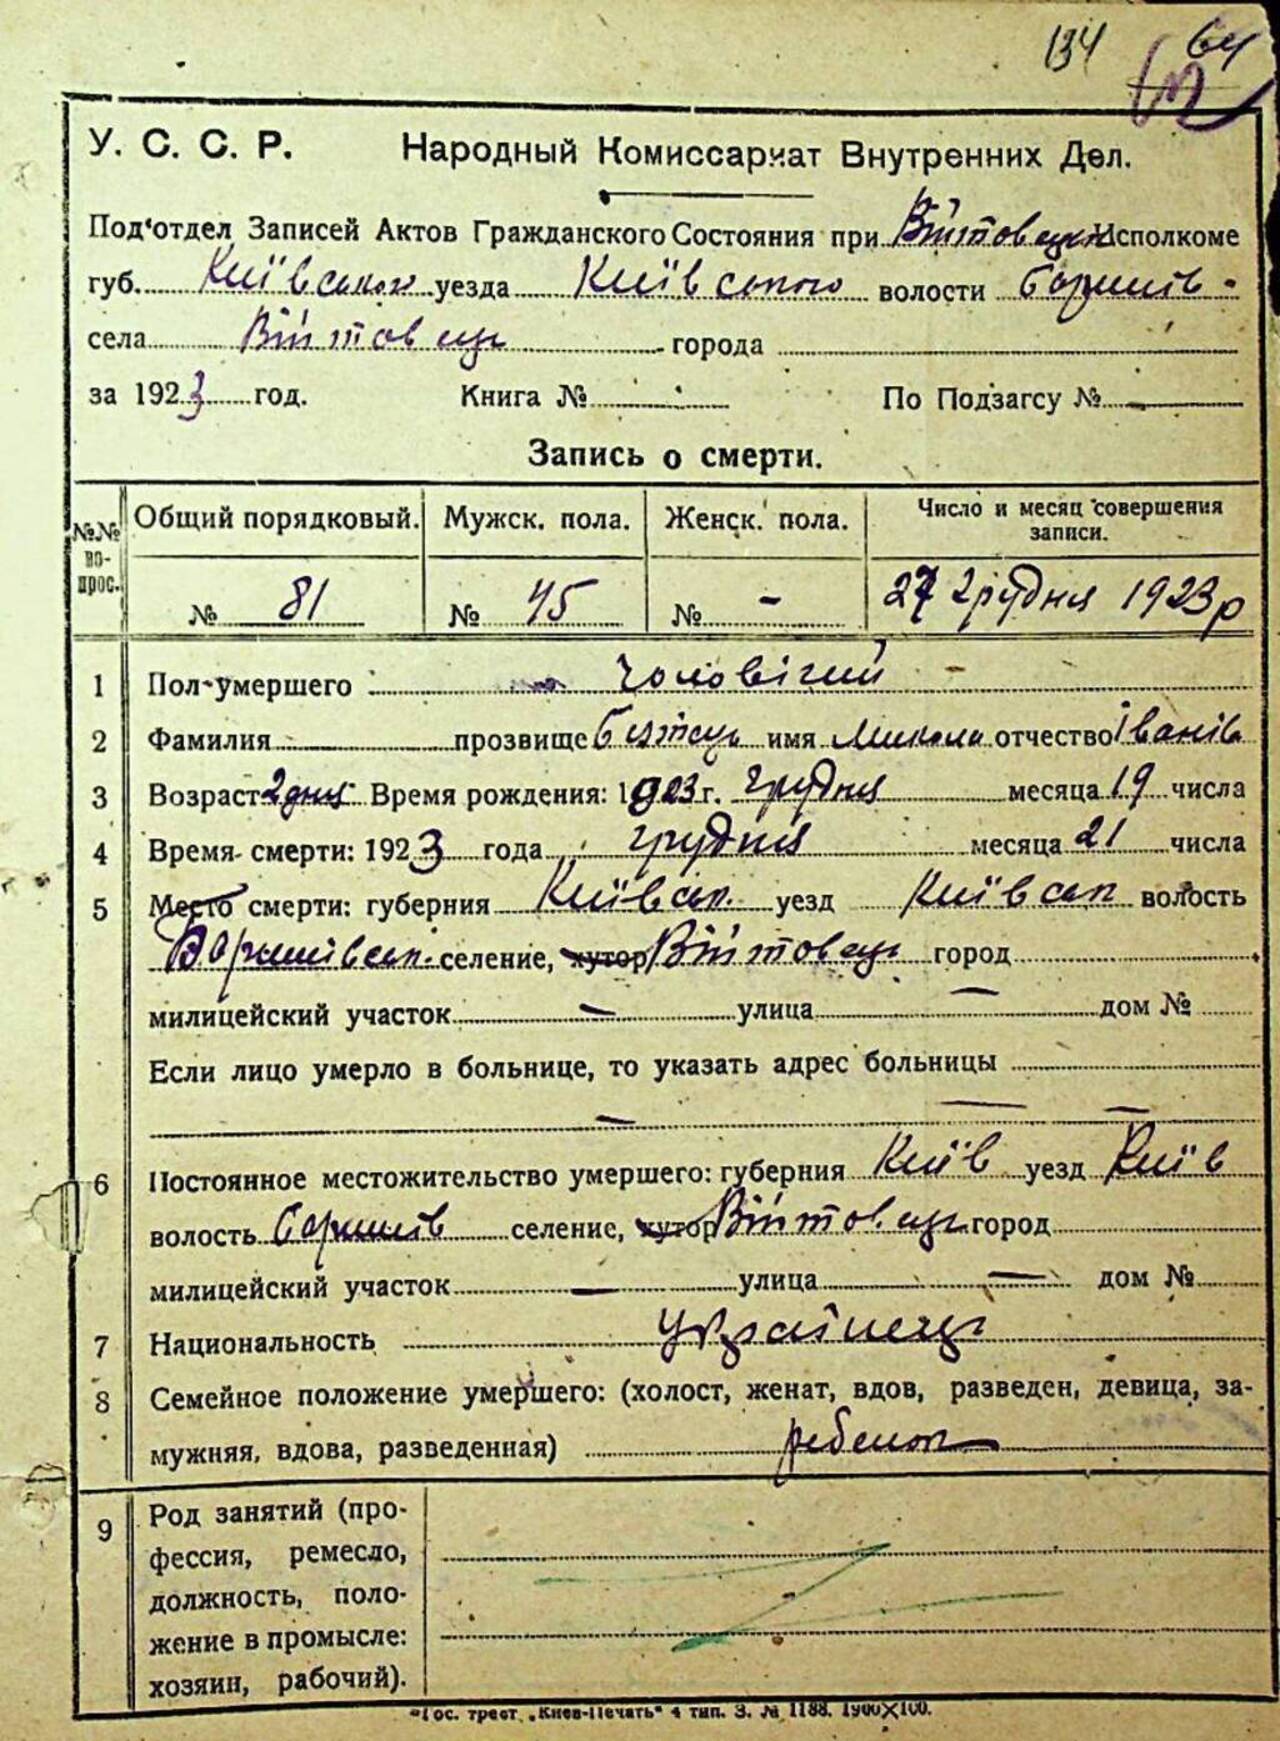 134 64
У. С. С. Р. Народный Комиссариат Внутренних Дел.
Под'отдел Записей Актов Гражданского Состояния при Війтовецк Исполкоме
губ. Київської уезда Київського волости Боршів-
села Війтовець города
за 1923 год. Книга № По Подзагсу № —
Запись о смерти.
№№ во-прос. Общий порядковый. Мужск. пола. Женск. пола. Число и месяц совершения записи.
№ 81 № 45 № - 27 Грудня 1923 р
1 Пол умершего чоловічий -
2 Фамилия прозвище имя Микола отчество Іванів
3 Возраст 2 дня Время рождения: 1923 г. грудня месяца 19 числа
4 Время смерти: 1923 года грудня месяца 21 числа
5 Место смерти: губерния Київськ. уезд Київськ волость
Боршівськ. селение, хутор Війтовець город
милицейский участок — улица — дом №
Если лицо умерло в больнице, то указать адрес больницы
— — —
6 Постоянное местожительство умершего: губерния Київ уезд Київ
волость Боршів селение, хутор Війтовець город
милицейский участок — улица — дом №
7 Национальность Українець
8 Семейное положение умершего: (холост, женат, вдов, разведен, девица, за-
мужняя, вдова, разведенная) ребенок
9 Род занятий (про-
фессия, ремесло,
должность, поло-
жение в промысле:
хозяин, рабочий).
Гос. трест „Киев-Печать" 4 тип. З. № 1188. 1900×100.